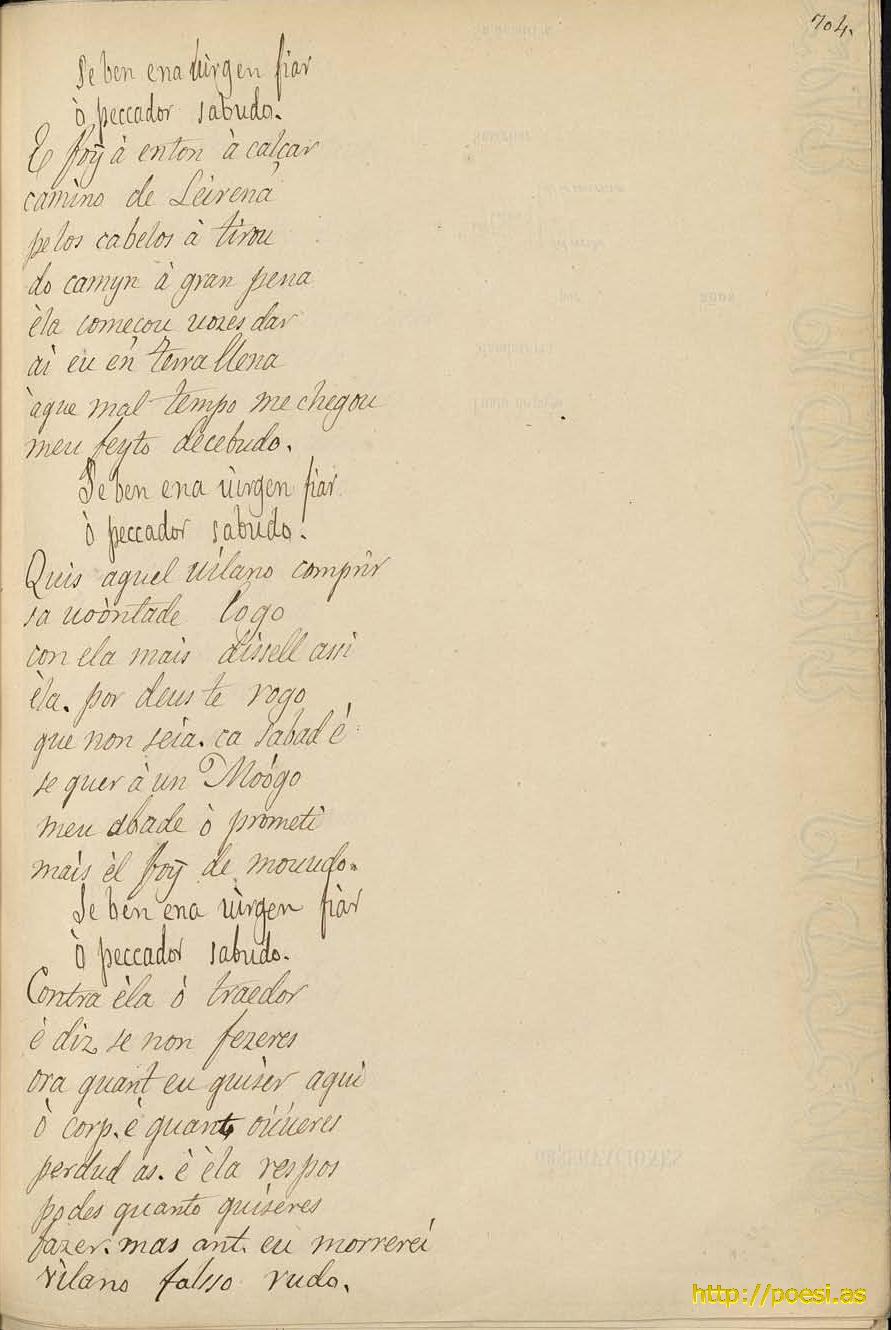 704.
Se ben ena uìrgen fiar
ò peccador sabudo.
E foỹ à enton à calçar
camìno de Leirena
pelos cabelos à tirou
do camyn à gran pena
èla começou uozes dar
ai eu en terra llena
àque mal tempo me chegou
meu feyto decebudo.
Se ben ena uìrgen fiar
ò peccador sabudo.
Quis aquel uilano comprir
sa uoòntade logo
con ela mais dissell assi
èla. por deus te rogo
que non seia. ca sabad é
se quer à un Moógo
meu abade ò prometì
mais èl foỹ de mouudo.
Se ben ena uìrgen fiar
ò peccador sabudo.
Contra èla ó traedor
è diz se non fezeres
ora quant eu quiser aqui
ò corp. è quant, oúueres
perdud as. è èla respos
podes quanto quiseres
fazer. mas ant. eu morrerei
vìlano falsso rudo.
http://poesi.as